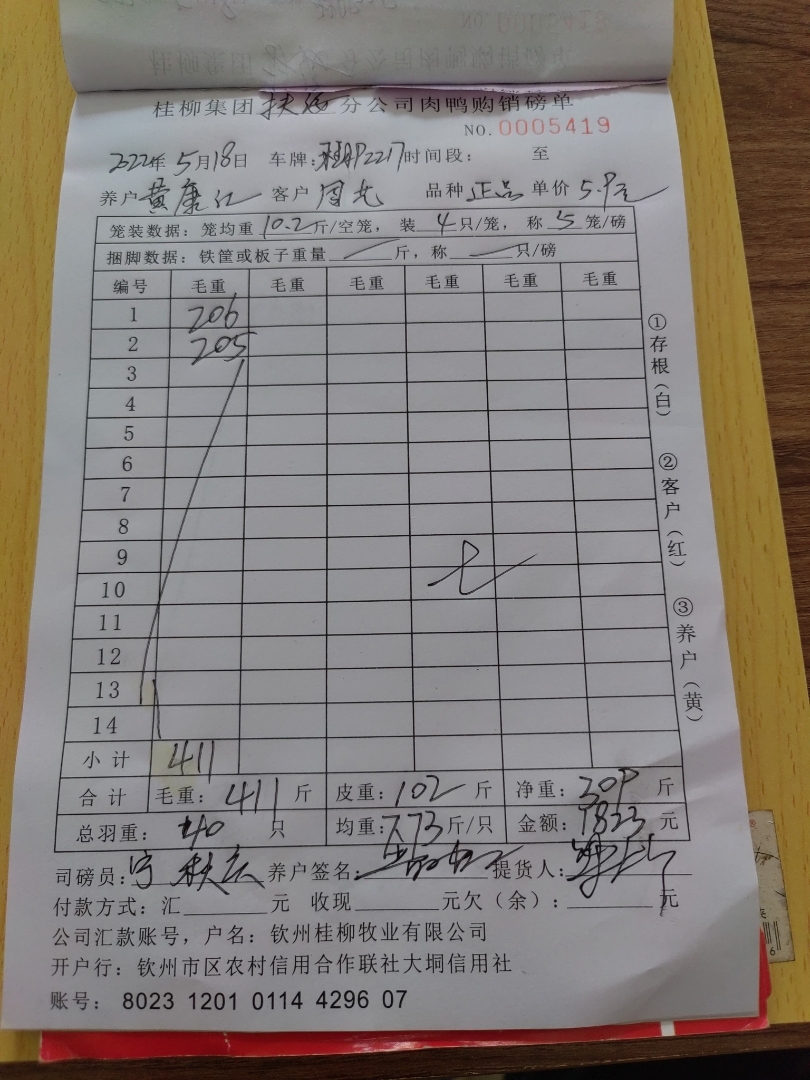 桂柳集团扶绥分公司肉鸭购销磅单
NO.0005419
2022年5月18日 车牌: 2217 时间段： 至
养户 黄康仁 客户 周先 品种 正品 单价 5.9元
笼装数据：笼均重10.2斤/空笼，装4只/笼，称5笼/磅
捆脚数据：铁筐或板子重量 斤，称 只/磅
编号 毛重 毛重 毛重 毛重 毛重 毛重
1 206
2 205
3
4
5
6
7
8
9
10
11
12
13
14
小计 411
合计 毛重：411斤 皮重：102斤 净重：309斤
总羽重：40只 均重：7.73斤/只 金额：1823元
司磅员： 养户签名： 提货人：
付款方式：汇 元 收现 元欠（余）： 元
公司汇款账号，户名：钦州桂柳牧业有限公司
开户行：钦州市区农村信用合作联社大垌信用社
账号：8023 1201 0114 4296 07
①存根（白）
②客户（红）
③养户（黄）